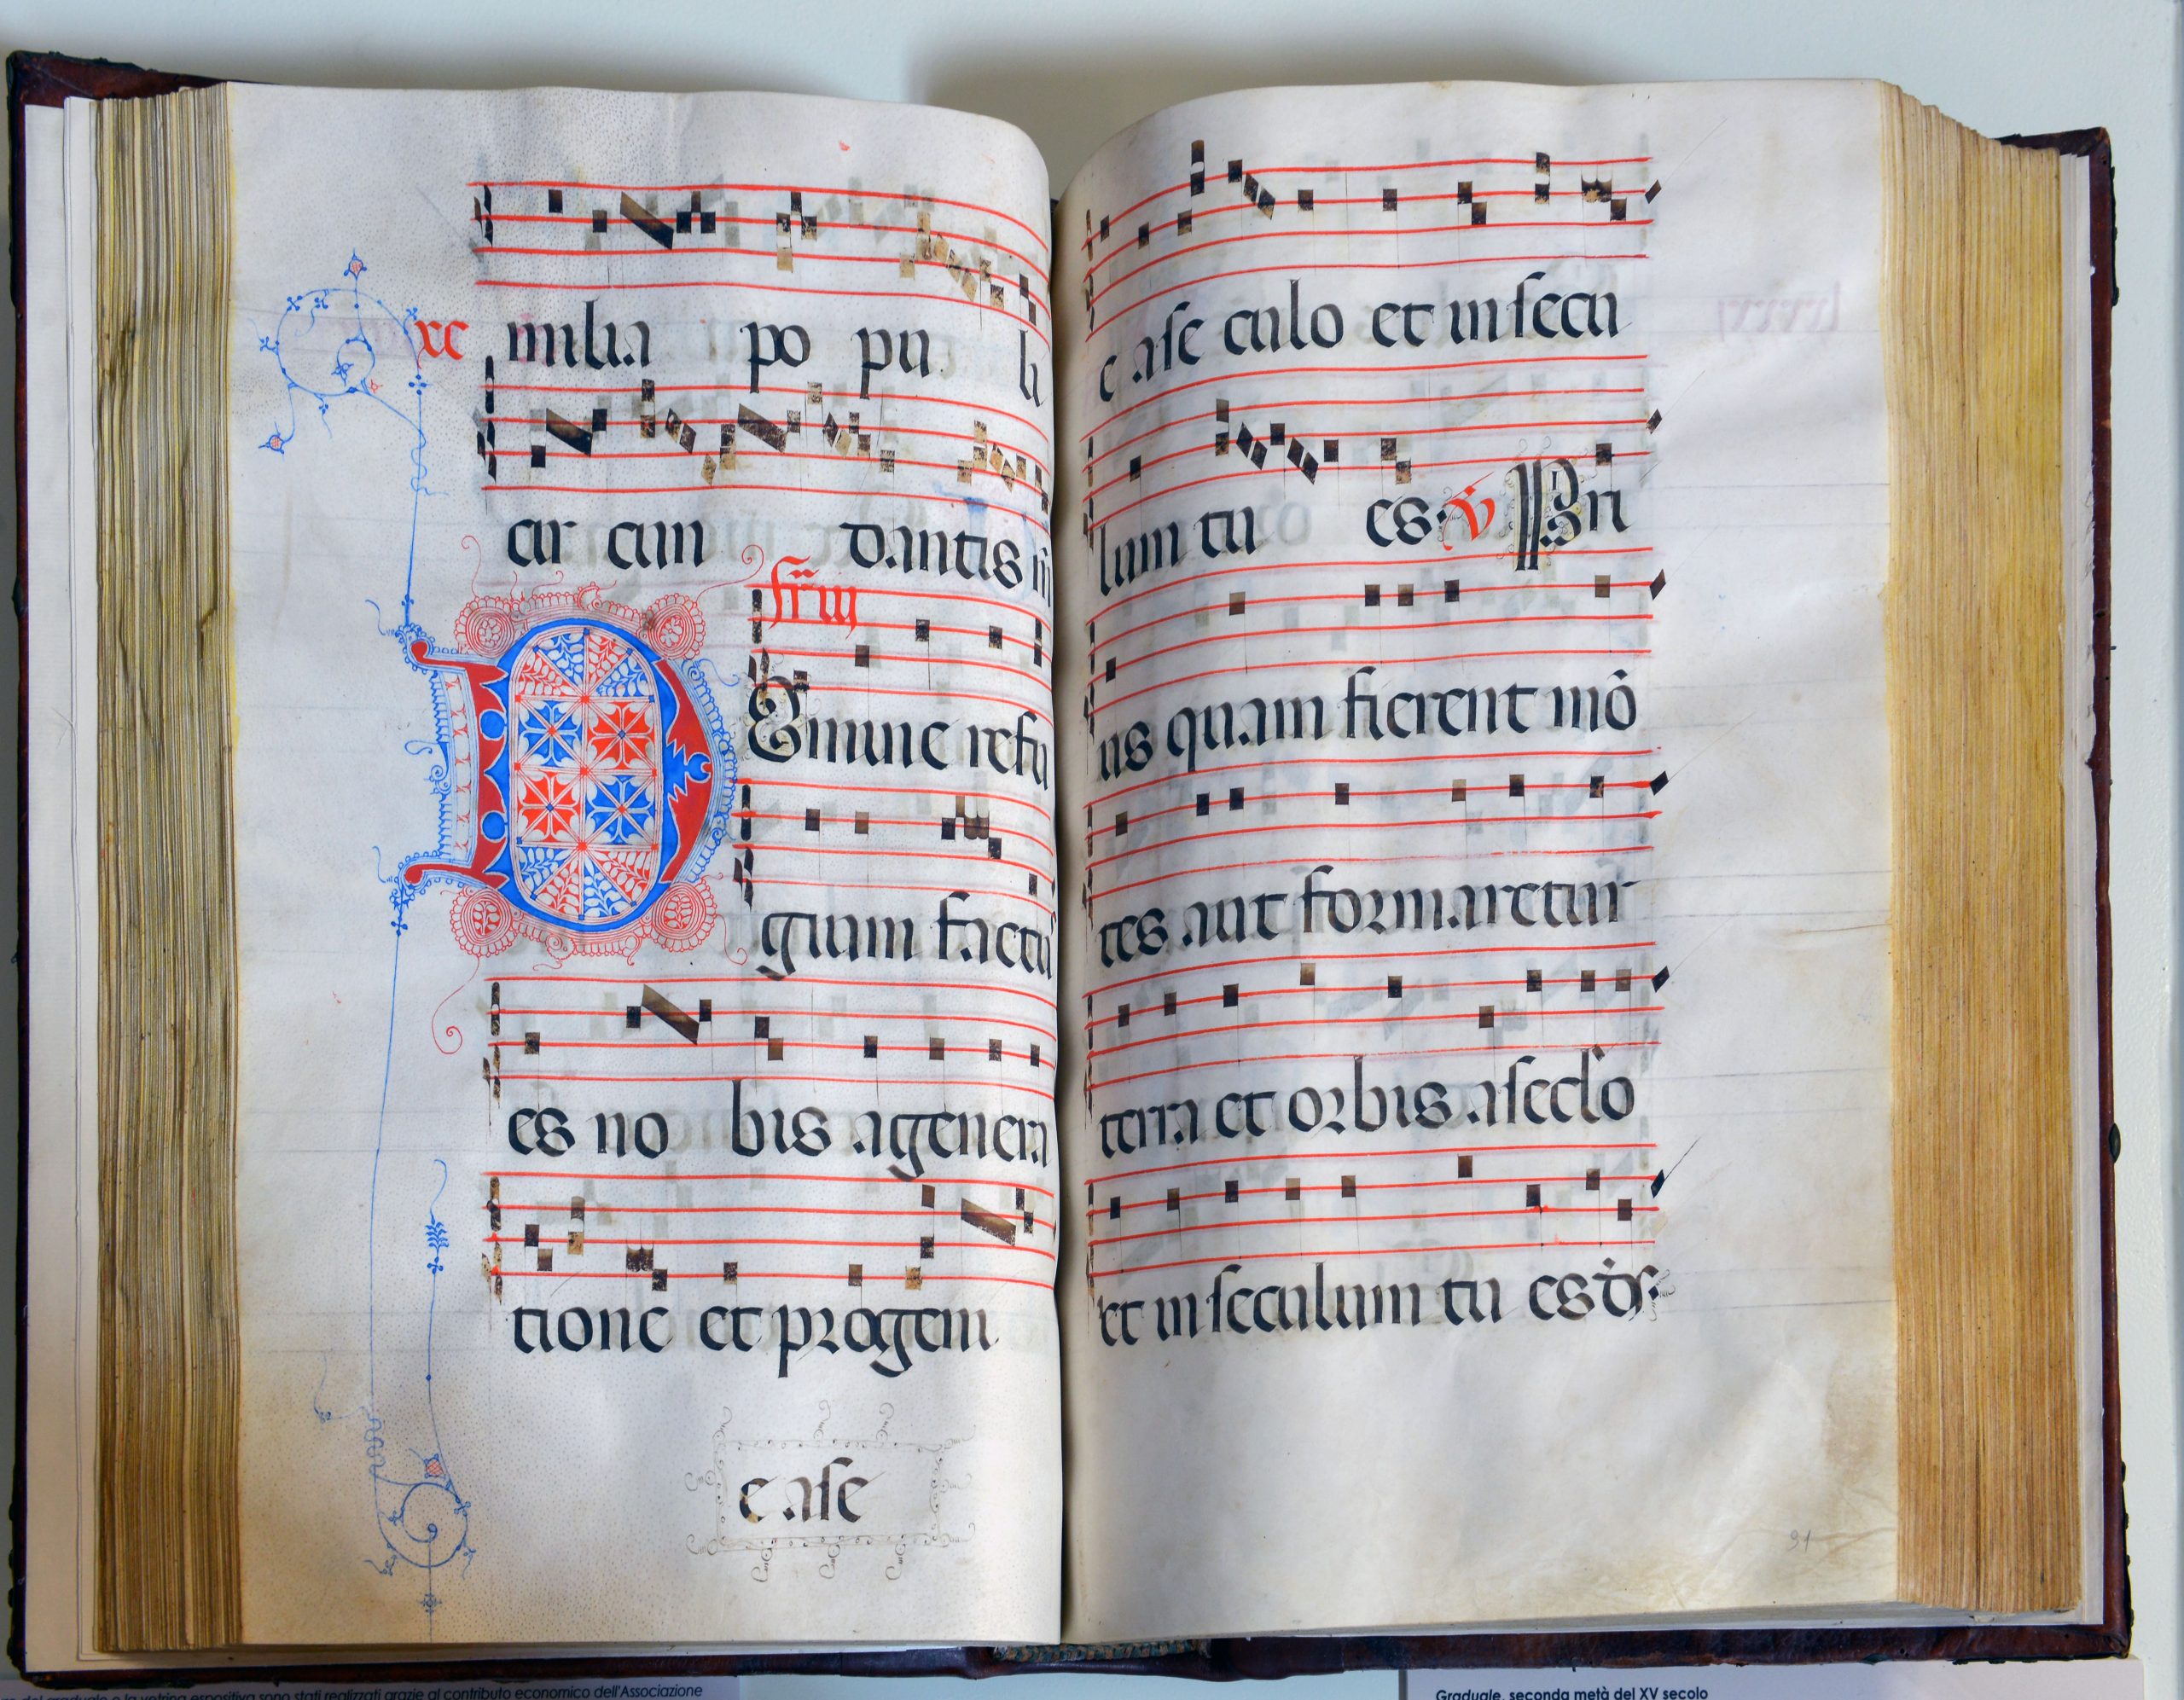 milia po pu li
cir cun dantis m
fr̄ iii
Domine refu
gium factu
es no bis a genera
tione et progeni
e ase
e ase culo et in secu
lum tu es. v̇ Pri
us quam fierent mō
tes aut formaretur
terra et orbis a seclo
et in seculum tu es
91
del graduale e la vetrina espositiva sono stati realizzati grazie al contributo economico dell'Associazione
Graduale, seconda metà del XV secolo